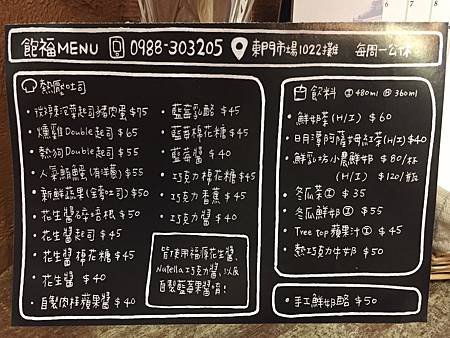 飽福MENU 0988-303205 東門市場1022攤 每周一公休
熱壓吐司
起司豬肉蛋 $75
燻雞Double起司 $65
熱狗Double起司 $55
人氣鮪魚 (有洋蔥) $55
新鮮蔬果(全麥吐司) $50
花生醬 $50
花生醬起司 $45
花生醬棉花糖 $45
花生醬 $40
自製肉桂蘋果醬 $40
藍莓乳酪 $45
藍莓棉花糖 $45
藍莓醬 $40
巧克力棉花糖 $45
巧克力香蕉 $45
巧克力醬 $40
皆使用福源花生醬、
Nutella巧克力醬、以及
自製藍莓果醬唷!
飲料 Ⓘ 480ml Ⓗ 360ml
鮮奶茶(H/I) $60
日月潭阿薩姆紅茶(H/I) $40
鮮乳坊小農鮮奶 $80/杯
(H/I) $120/瓶
冬瓜茶Ⓘ $35
冬瓜鮮奶Ⓘ $55
Tree top蘋果汁Ⓘ $45
熱巧克力牛奶 $50
手工鮮奶酪 $50